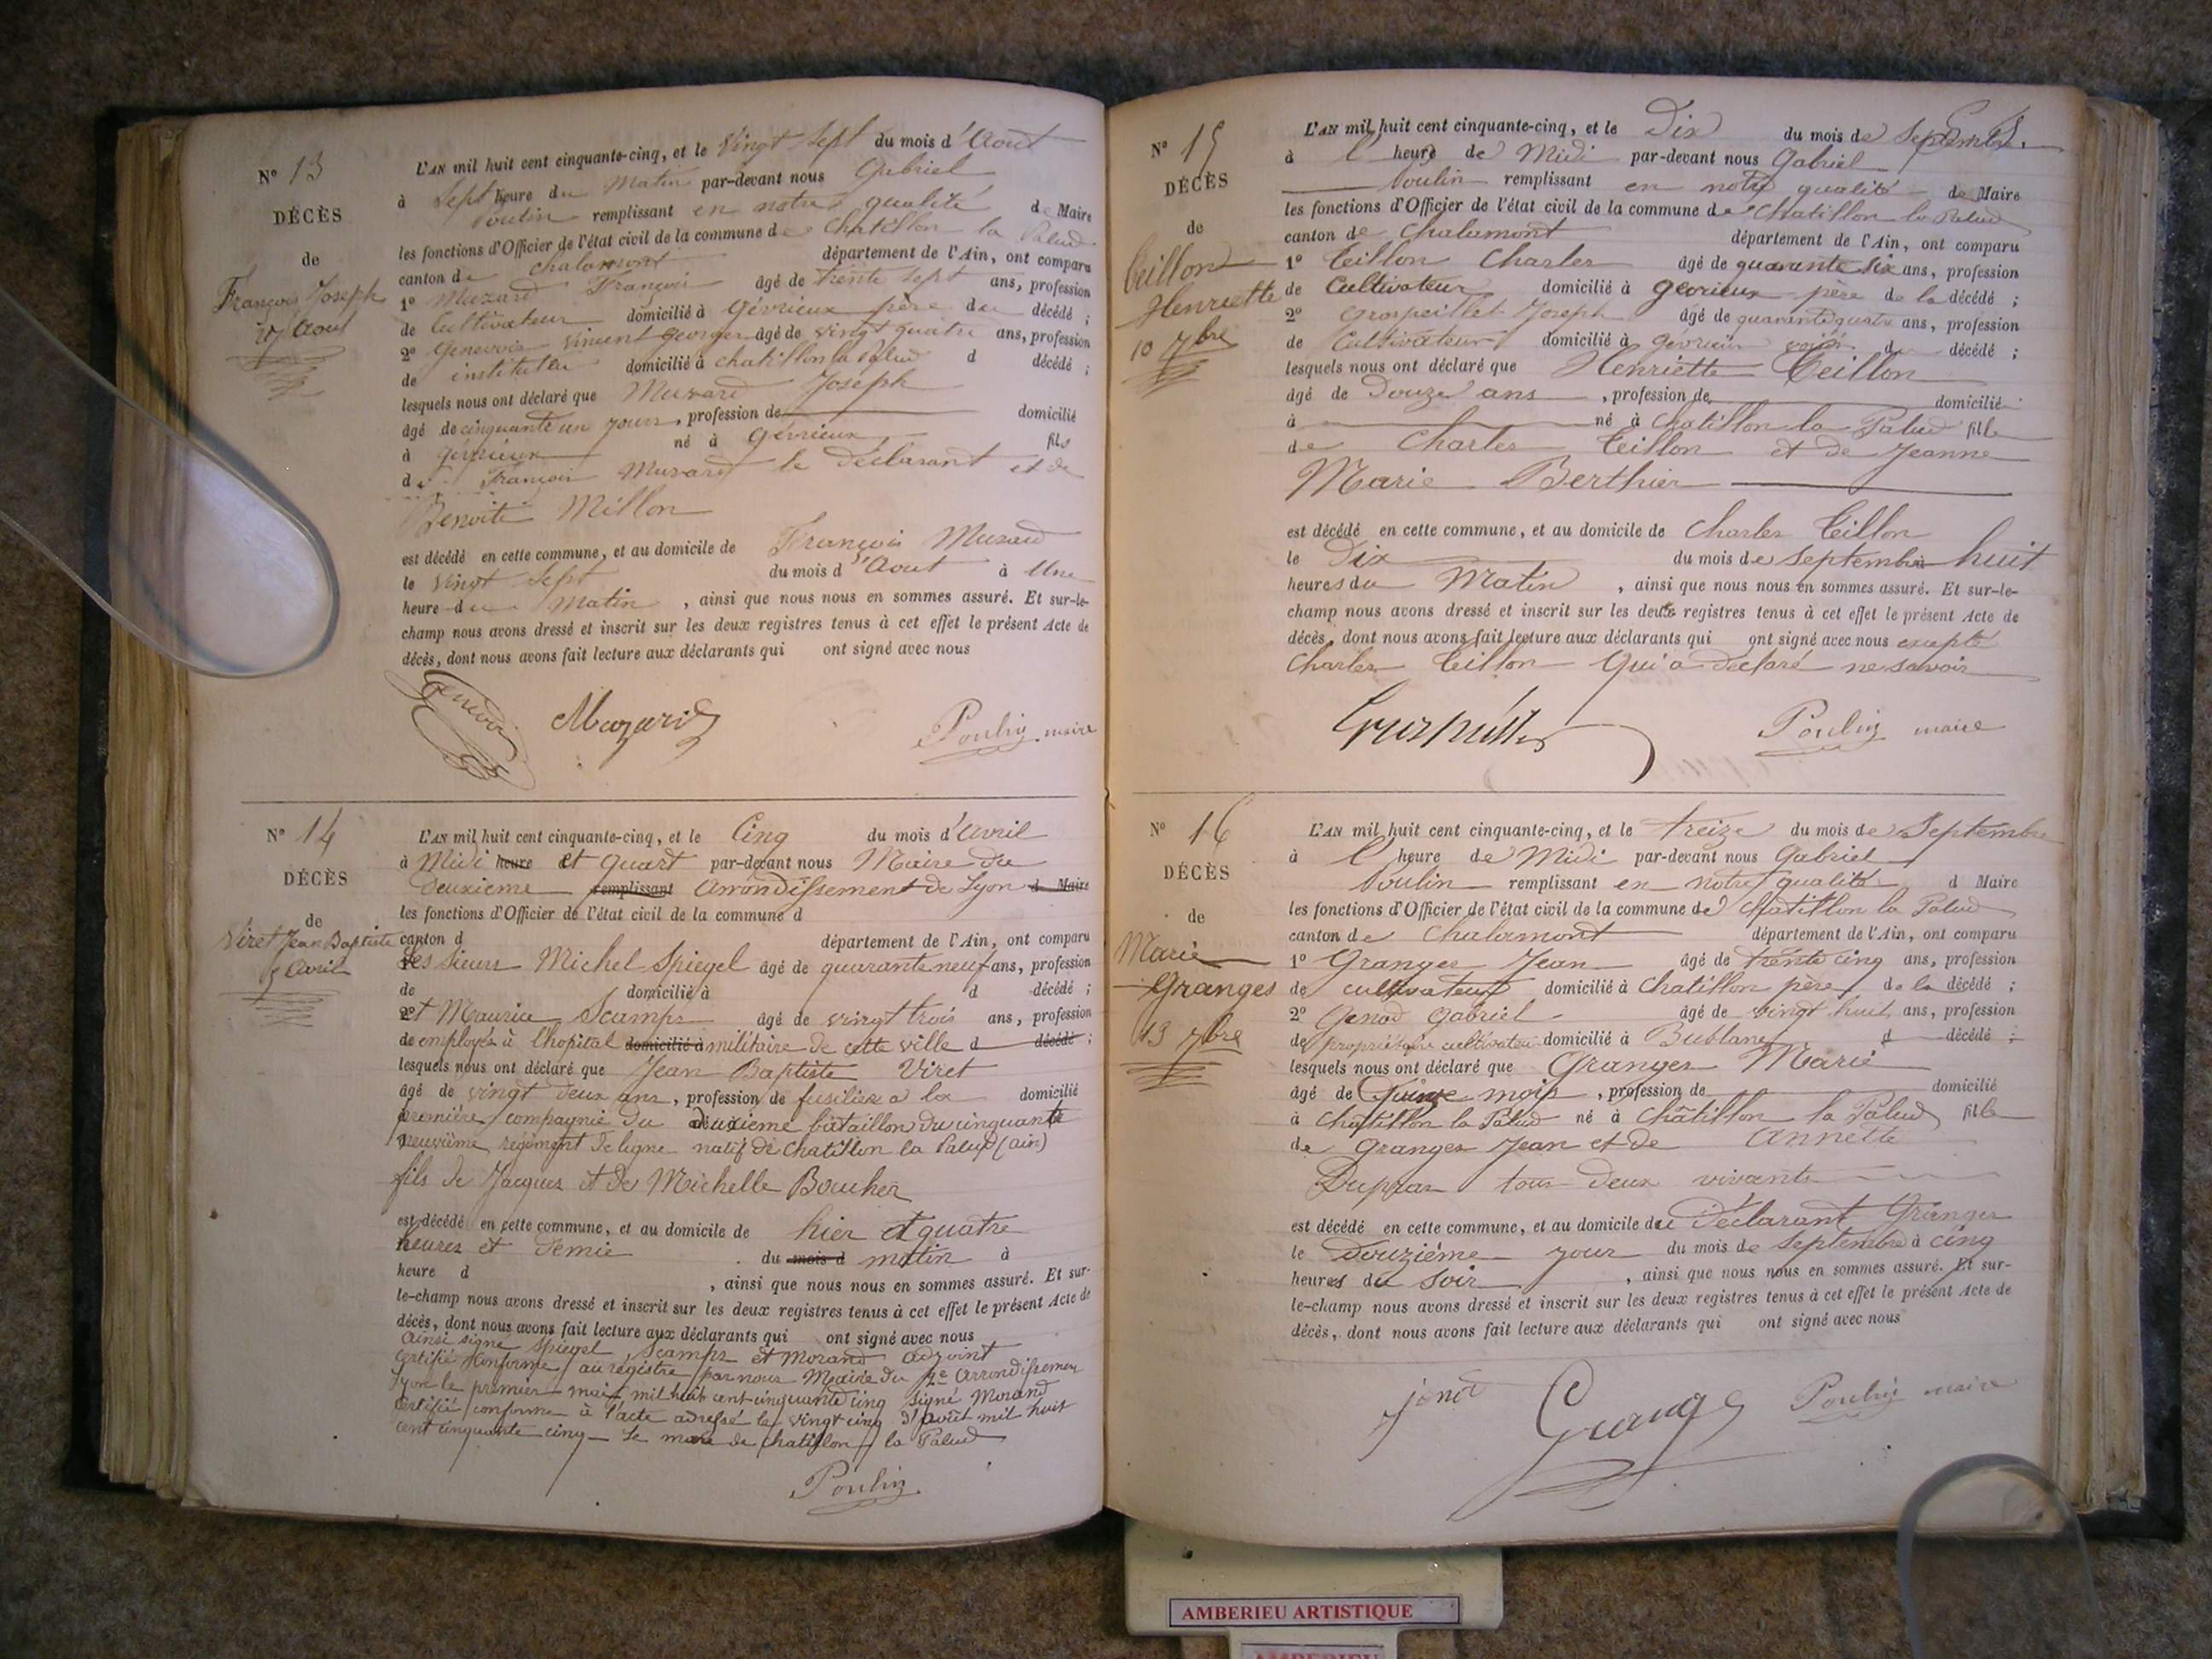 N° 13
DÉCÈS
de
François Joseph
27 Aout
L'AN mil huit cent cinquante-cinq, et le Vingt Sept du mois d'Aout
à Sept heure du Matin par-devant nous Gabriel
Poulin remplissant en notre qualité de Maire
les fonctions d'Officier de l'état civil de la commune de Chatillon la Palud
canton de Chalamont département de l'Ain, ont comparu
1° Muzard François âgé de trente sept ans, profession
de Cultivateur domicilié à Gévrieux père du décédé ;
2° Genevois Vincent Georges âgé de vingt quatre ans, profession
de instituteur domicilié à Chatillon la Palud d décédé ;
lesquels nous ont déclaré que Muzard Joseph
âgé de cinquante un jours, profession de domicilié
à Gévrieux né à Gévrieux fils
de François Muzard le déclarant et de
Benoite Millon
est décédé en cette commune, et au domicile de François Muzard
le Vingt Sept du mois d'Aout à Une
heure du Matin, ainsi que nous nous en sommes assuré. Et sur-le-
champ nous avons dressé et inscrit sur les deux registres tenus à cet effet le présent Acte de
décès, dont nous avons fait lecture aux déclarants qui ont signé avec nous
Muzard Poulin maire
N° 14
DÉCÈS
de
Viret Jean Baptiste
5 Avril
L'AN mil huit cent cinquante-cinq, et le Cinq du mois d'Avril
à Midi heure et quart par-devant nous Maire du
deuxième remplissant arrondissement de Lyon d Maire
les fonctions d'Officier de l'état civil de la commune d
canton d département de l'Ain, ont comparu
les sieurs Michel Spiegel âgé de quarante neuf ans, profession
de domicilié à d décédé ;
2° et Maurice Scamps âgé de vingt trois ans, profession
de employés à l'hopital domicilié à militaire de cette ville d décédé ;
lesquels nous ont déclaré que Jean Baptiste Viret
âgé de vingt deux ans, profession de fusilier a la domicilié
première compagnie du deuxième bataillon du cinquante
neuvième régiment de ligne natif de Chatillon la Palud (ain)
fils de Jacques et de Michelle Boucher
est décédé en cette commune, et au domicile de hier et quatre
heures et demie du mois d matin à
heure d , ainsi que nous nous en sommes assuré. Et sur-
le-champ nous avons dressé et inscrit sur les deux registres tenus à cet effet le présent Acte de
décès, dont nous avons fait lecture aux déclarants qui ont signé avec nous
ainsi signé Spiegel, Scamps et Morand adjoint
certifié conforme au registre par nous Maire du 2e arrondissement
Lyon le premier mai mil huit cent cinquante cinq signé Morand
certifié conforme à l'acte adressé le vingt cinq d'août mil huit
cent cinquante cinq Le maire de Chatillon la Palud
Poulin
N° 15
DÉCÈS
de
Teillon
Henriette
10 7bre
L'AN mil huit cent cinquante-cinq, et le Dix du mois de Septembre
à l' heure de Midi par-devant nous Gabriel
Poulin remplissant en notre qualité de Maire
les fonctions d'Officier de l'état civil de la commune de Chatillon la Palud
canton de Chalamont département de l'Ain, ont comparu
1° Teillon Charles âgé de quarante six ans, profession
de Cultivateur domicilié à Gevrieux père de la décédé ;
2° Grospeillet Joseph âgé de quarante quatre ans, profession
de Cultivateur domicilié à Gévrieux voisin d décédé ;
lesquels nous ont déclaré que Henriette Teillon
âgé de Douze ans, profession de domicilié
à né à Chatillon la Palud fille
de Charles Teillon et de Jeanne
Marie Berthier
est décédé en cette commune, et au domicile de Charles Teillon
le Dix du mois de Septembre huit
heures du Matin, ainsi que nous nous en sommes assuré. Et sur-le-
champ nous avons dressé et inscrit sur les deux registres tenus à cet effet le présent Acte de
décès, dont nous avons fait lecture aux déclarants qui ont signé avec nous excepté
Charles Teillon Qui a déclaré ne savoir
Poulin maire
N° 16
DÉCÈS
de
Marie
Granges
13 7bre
L'AN mil huit cent cinquante-cinq, et le treize du mois de Septembre
à l' heure de Midi par-devant nous Gabriel
Poulin remplissant en notre qualité d Maire
les fonctions d'Officier de l'état civil de la commune de Chatillon la Palud
canton de Chalamont département de l'Ain, ont comparu
1° Granges Jean âgé de trente cinq ans, profession
de cultivateur domicilié à Chatillon père de la décédé ;
2° Genod Gabriel âgé de vingt huit ans, profession
de propriétaire cultivateur domicilié à Bublane d décédé ;
lesquels nous ont déclaré que Granges Marie
âgé de Quinze mois, profession de domicilié
à Chatillon la Palud né à Châtillon la Palud fille
de Granges Jean et de Annette
Dupras tous deux vivants
est décédé en cette commune, et au domicile du Déclarant Granges
le Douzième jour du mois de Septembre à cinq
heures du Soir, ainsi que nous nous en sommes assuré. Et sur-
le-champ nous avons dressé et inscrit sur les deux registres tenus à cet effet le présent Acte de
décès, dont nous avons fait lecture aux déclarants qui ont signé avec nous
jenod Grange Poulin maire
AMBERIEU ARTISTIQUE
AMBERIEU